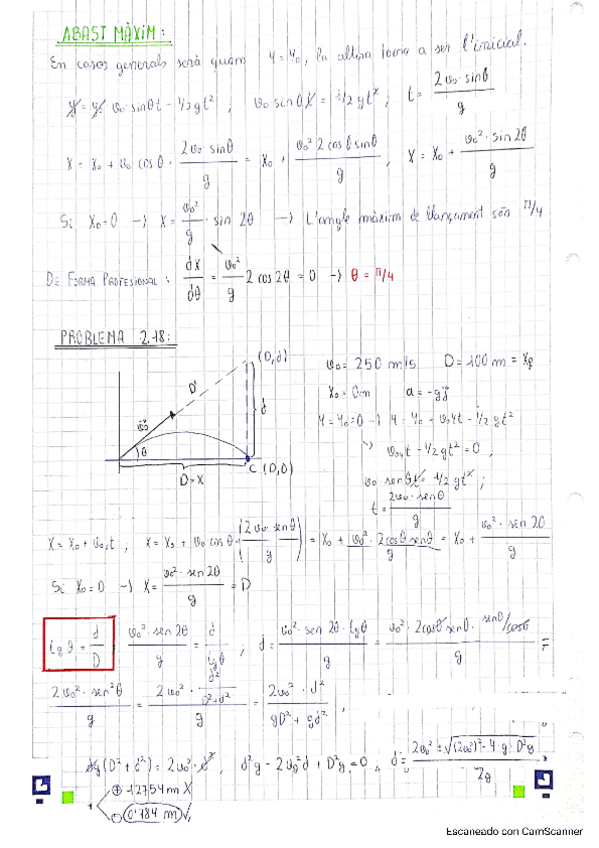 ABAST MÀXIM:
En casos generals serà quan y = y₀, l'altura torna a ser l'inicial.
y = y₀ v₀·sinθt - 1/2 gt² ; v₀·sinθt = 1/2 gt² ; t = 2v₀·sinθ / g
x = x₀ + v₀·cosθ · 2v₀·sinθ / g = x₀ + v₀²·2cosθsinθ / g , x = x₀ + v₀²·sin2θ / g
Si x₀=0 → x = v₀²/g · sin 2θ → L'angle màxim de llançament són π/4
DE FORMA PROFESIONAL: dx/dθ = v₀²/g 2 cos 2θ = 0 → θ = π/4
PROBLEMA 2.18:
(D,d)
v₀ = 250 m/s D = 100 m = x
D'
d
x₀ = 0m a = -gj
v₀
θ
y = y₀ = 0 → y = y₀ + v₀yt - 1/2 gt²
C (D,0)
D = x
v₀yt - 1/2 gt² = 0 ;
v₀·senθt = 1/2 gt² ;
t = 2v₀·senθ / g
x = x₀ + v₀xt , x = x₀ + v₀ cosθ · (2v₀·senθ / g) = x₀ + v₀²·2cosθsenθ / g = x₀ + v₀²·sen 2θ / g
Si x₀ = 0 → x = v₀²·sen2θ / g = D
tgθ = d/D v₀²·sen2θ / g = d / tgθ , d = v₀²·sen 2θ·tgθ / g = v₀²·2cosθsenθ·senθ/cosθ / g =
2v₀²·sen²θ / g = 2v₀²· d²/D²+d² / g = 2v₀²·d² / gD²+gd² ,
dg(D²+d²) = 2v₀²·d² , d²g - 2v₀²d + D²g = 0 , d = 2v₀² ± √(2v₀²)² - 4·g·D²g / 2g
⊕ 12754 m X
⊖ 0'784 m √
Escaneado con CamScanner